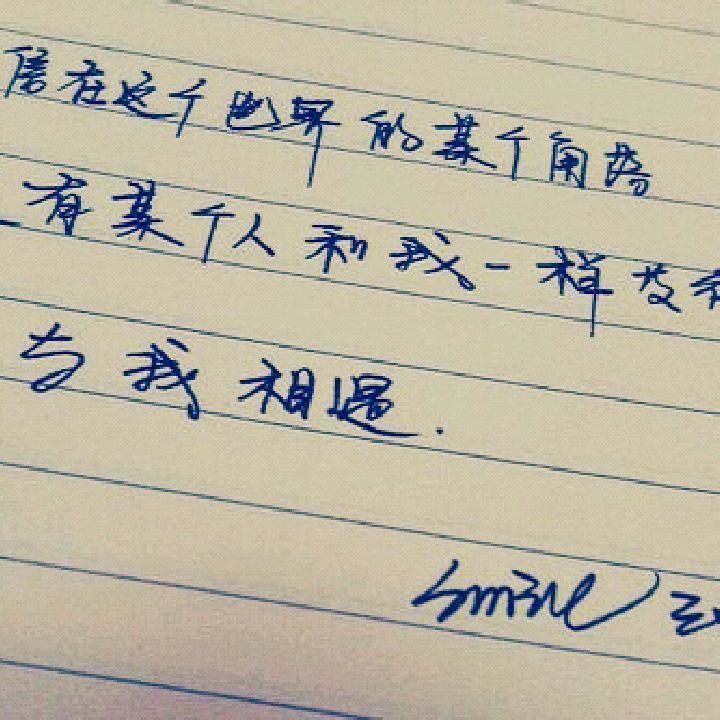 信在这个世界的某个角落
有某个人和我一样没有
与我相遇.
Smile